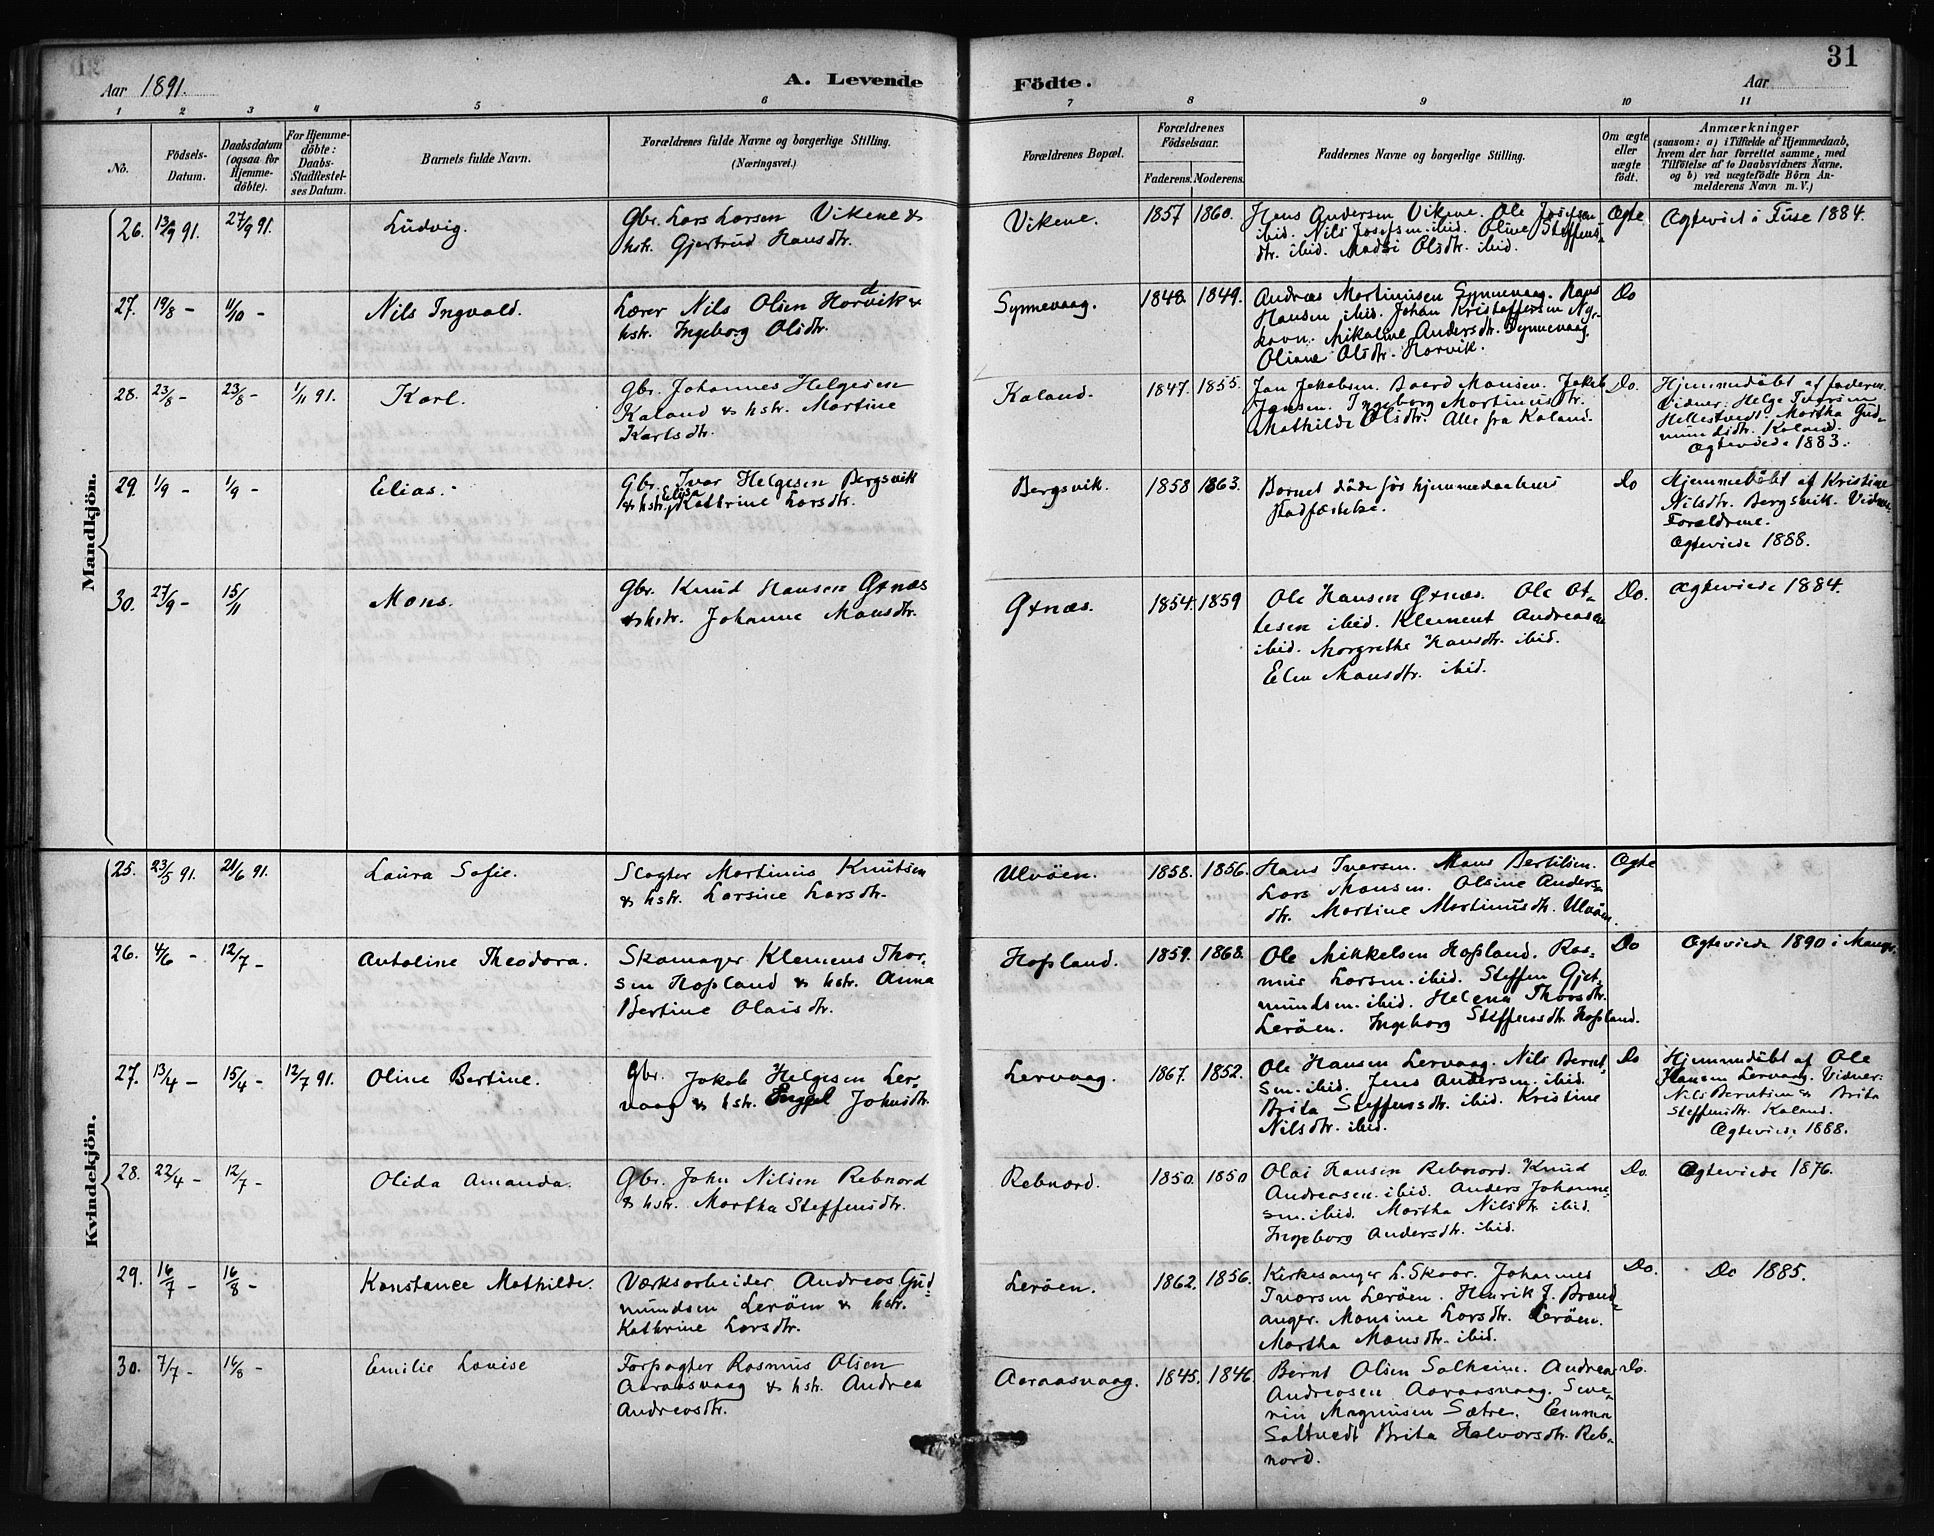 31
Aar 1891.
A. Levende
Födte.
Aar
1 2 3 4 5 6 7 8 9 10 11
No.
Födsels-
Datum.
Daabsdatum
(ogsaa for
Hjemme-
döbte).
For Hjemme-
döbte:
Daabs-
Stadfæstel-
ses Datum.
Barnets fulde Navn.
Forældrenes fulde Navne og borgerlige Stilling.
(Næringsvei.)
Forældrenes Bopæl.
Forældrenes
Födselsaar.
Faderens. Moderens.
Faddernes Navne og borgerlige Stilling.
Om ægte
eller
uægte
födt.
Anmærkninger
(saasom: a) i Tilfælde af Hjemmedaab,
hvem der har forrettet samme, med
Tilföielse af to Daabsvidners Navne,
og b) ved uægtefödte Börn An-
melderens Navn m. V.)
Mandkjön.
26. 13/9 91. 27/9 91. Ludvig.
Gbr. Lars Larsen Vikene &
hstr. Gjertrud Hansdtr.
Vikene. 1857 1860.
Hans Andersen Vikene. Ole Josefsen
ibid. Nils Josefsen ibid. Oline Steffens-
dtr. ibid. Madsi Olsdtr. ibid.
Ægte. Ægteviet i Fuse 1884.
27. 19/8 - 11/10 - Nils Ingvald.
Lærer Nils Olsen Hordvik &
hstr. Ingeborg Olsdtr.
Synnevaag. 1848. 1849.
Andreas Martinusen Synnevaag. Hans
Hansen ibid. Johan Kristoffersen Ny-
havn. Mikaline Andersdtr. Synnevaag.
Oliane Olsdtr. Horvik.
Do
28. 23/8 - 23/8 - 1/11 91. Karl.
Gbr. Johannes Helgesen
Kaland & hstr. Martine
Karlsdtr.
Kaland. 1847. 1855.
Jan Jakobsen. Baard Monsen. Jakob
Jansen. Ingeborg Martinusdtr.
Mathilde Olsdtr. Alle fra Kaland.
Do.
Hjemmedøbt af faderen.
Vidner: Helge Ivarsen
Hellestvedt. Martha Gud-
mundsdtr. Kaland.
Ægteviede 1883.
29. 1/9 - 1/9 - Elias.
Gbr. Ivar Helgesen Bergsvik
& hstr. Elisa Kathrine Larsdtr.
Bergsvik. 1858 1863.
Barnet døde før hjemmedaabens
stadfæstelse.
Do
Hjemmedøbt af Kristine
Nilsdtr. Bergsvik. Vidner:
Forældrene.
Ægteviede 1888.
30. 27/9 - 15/11 Mons.
Gbr. Knud Hansen Øxnæs
& hstr. Johanne Monsdtr.
Øxnæs. 1854. 1859
Ole Hansen Øxnæs. Ole Ot-
tesen ibid. Klement Andreasen
ibid. Margrethe Hansdtr. ibid.
Elen Monsdtr. ibid.
Do. Ægteviede 1884.
Kvindekjön.
25. 23/5 91. 21/6 91. Laura Sofie.
Slagter Martinus Knutsen
& hstr. Larsine Larsdtr.
Ulvøen. 1858. 1856.
Hans Iversen. Mons Bertilsen.
Lars Monsen. Olsine Anders-
dtr. Martine Martinusdtr. Ulvøen
Ægte
26. 4/6 - 12/7 - Antoline Theodora.
Skomager Klemens Thor-
sen Hopland & hstr. Anna
Bertine Olaisdtr.
Hopland. 1859. 1868.
Ole Mikkelsen Hopland. Ras-
mus Larsen ibid. Steffen Gjet-
mundsen ibid. Helena Thorsdtr.
Lerøen. Ingeborg Steffensdtr. Hopland.
Do Ægteviede 1890 i Manger.
27. 13/4 - 15/4 - 12/7 91. Oline Bertine.
Gbr. Jakob Helgesen Ler-
vaag & hstr. Engel Johnsdtr.
Lervaag. 1867. 1852.
Ole Hansen Lervaag. Nils Bernt-
sen ibid. Jens Andersen ibid.
Brita Steffensdtr. ibid. Kristine
Nilsdtr. ibid.
Do
Hjemmedøbt af Ole
Hansen Lervaag. Vidner:
Nils Berntsen & Brita
Steffensdtr. Kaland.
Ægteviede 1888.
28. 22/4 - 12/7 - Olida Amanda.
Gbr. John Nilsen Rebnord
& hstr. Martha Steffensdtr.
Rebnord. 1850. 1850
Olai Hansen Rebnord. Knud
Andreasen ibid. Anders Johanne-
sen ibid. Martha Nilsdtr. ibid.
Ingeborg Andersdtr. ibid.
Do. Ægteviede 1876.
29. 16/7 - 16/8 - Konstance Mathilde.
Værksarbeider Andreas Gud-
mundsen Lerøen & hstr.
Kathrine Larsdtr.
Lerøen. 1862. 1856.
Kirkesanger L. Skaar. Johannes
Ivarsen Lerøen. Henrik J. Brand-
anger. Monsine Larsdtr. Lerøen.
Martha Monsdtr. ibid.
Do. Do 1885.
30. 7/7 - 16/8 - Emilie Lovise
Forpagter Rasmus Olsen
Aaraasvaag & hstr. Andrea
Andreasdtr.
Aaraasvaag. 1845. 1846.
Bernt Olsen Solheim. Andreas
Andreasen Aaraasvaag. Seve-
rin Magnusen Sætre. Emma
Saltvedt Brita Halvorsdtr. Reb-
nord.
Do.